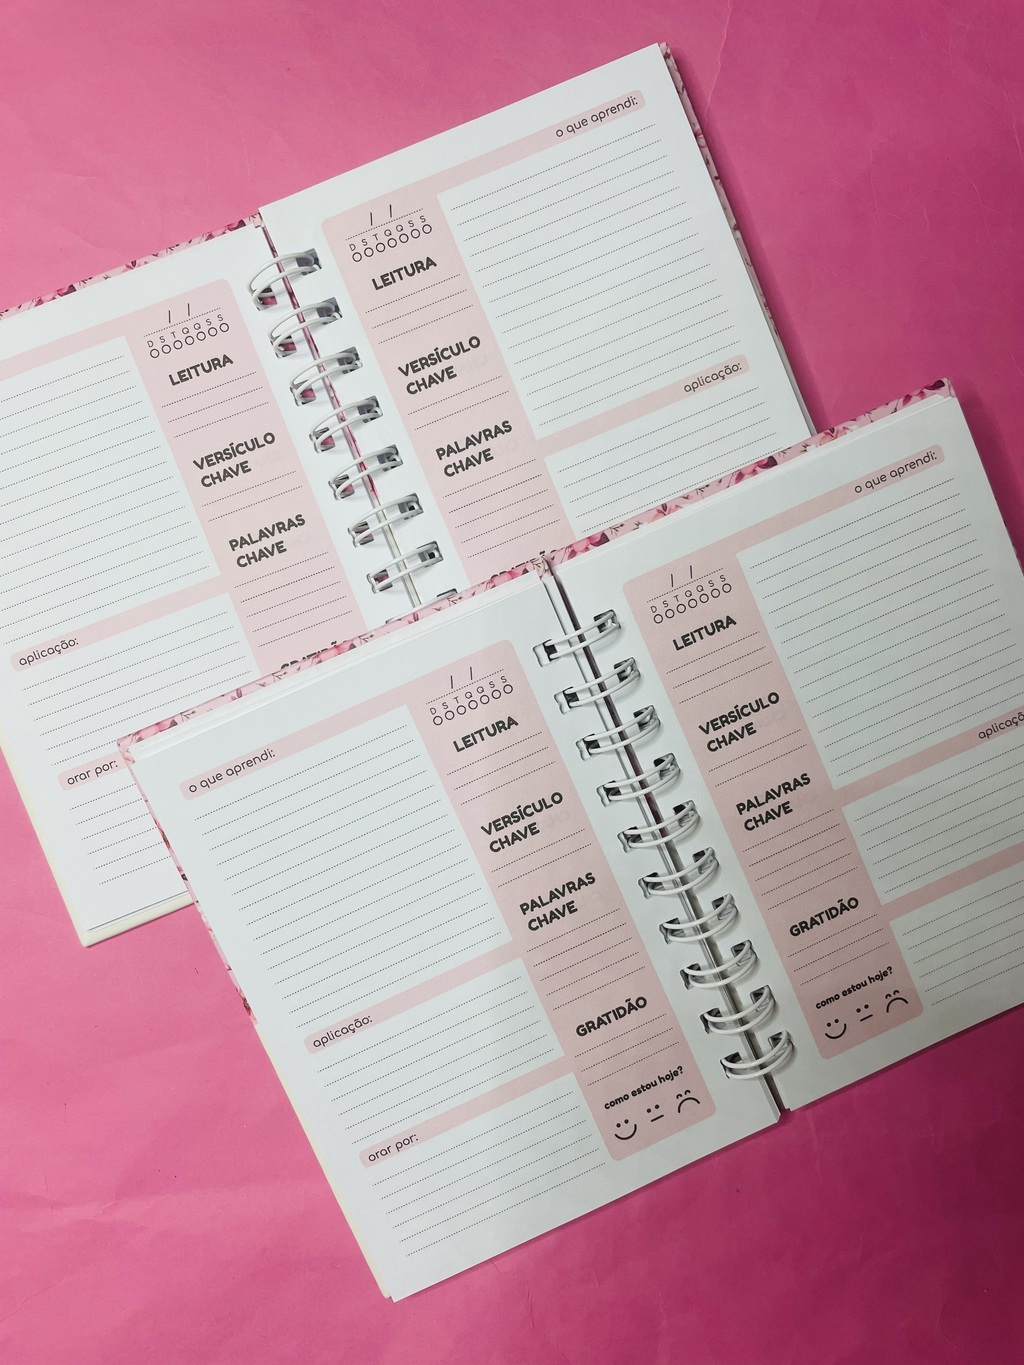 o que aprendi:
/ /
D S T Q Q S S
LEITURA
VERSÍCULO
CHAVE
PALAVRAS
CHAVE
aplicação:
/ /
D S T Q Q S S
LEITURA
VERSÍCULO
CHAVE
PALAVRAS
CHAVE
aplicação:
orar por:
/ /
D S T Q Q S S
LEITURA
VERSÍCULO
CHAVE
PALAVRAS
CHAVE
GRATIDÃO
como estou hoje?
o que aprendi:
aplicação:
orar por:
o que aprendi:
/ /
D S T Q Q S S
LEITURA
VERSÍCULO
CHAVE
PALAVRAS
CHAVE
GRATIDÃO
como estou hoje?